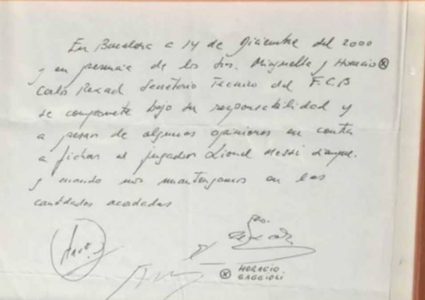 En Barcelona a 14 de Diciembre del 2000
y en presencia de los Sres. Minguella y Horacio ⊗
Carlo Rexach Secretario Tecnico del F.C.B
se compromete bajo su responsabilidad y
a pesar de algunas opiniones en contra
a fichar al jugador Lionel Messi siempre
y cuando nos mantengamos en las
cantidades acordadas
⊗ HORACIO
GAGGIOLI